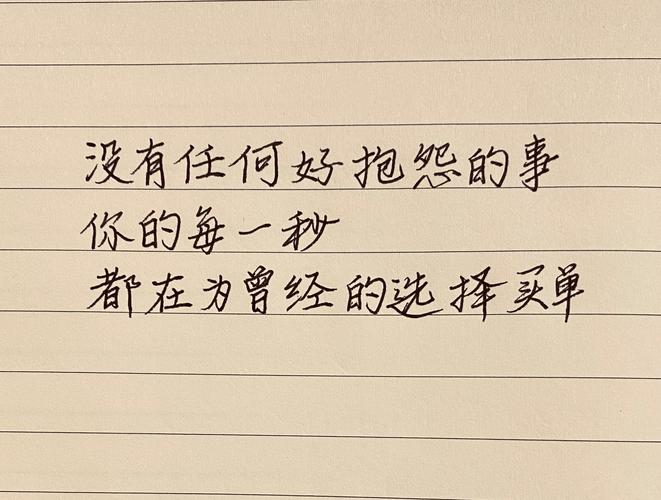 没有任何好抱怨的事
你的每一秒
都在为曾经的选择买单